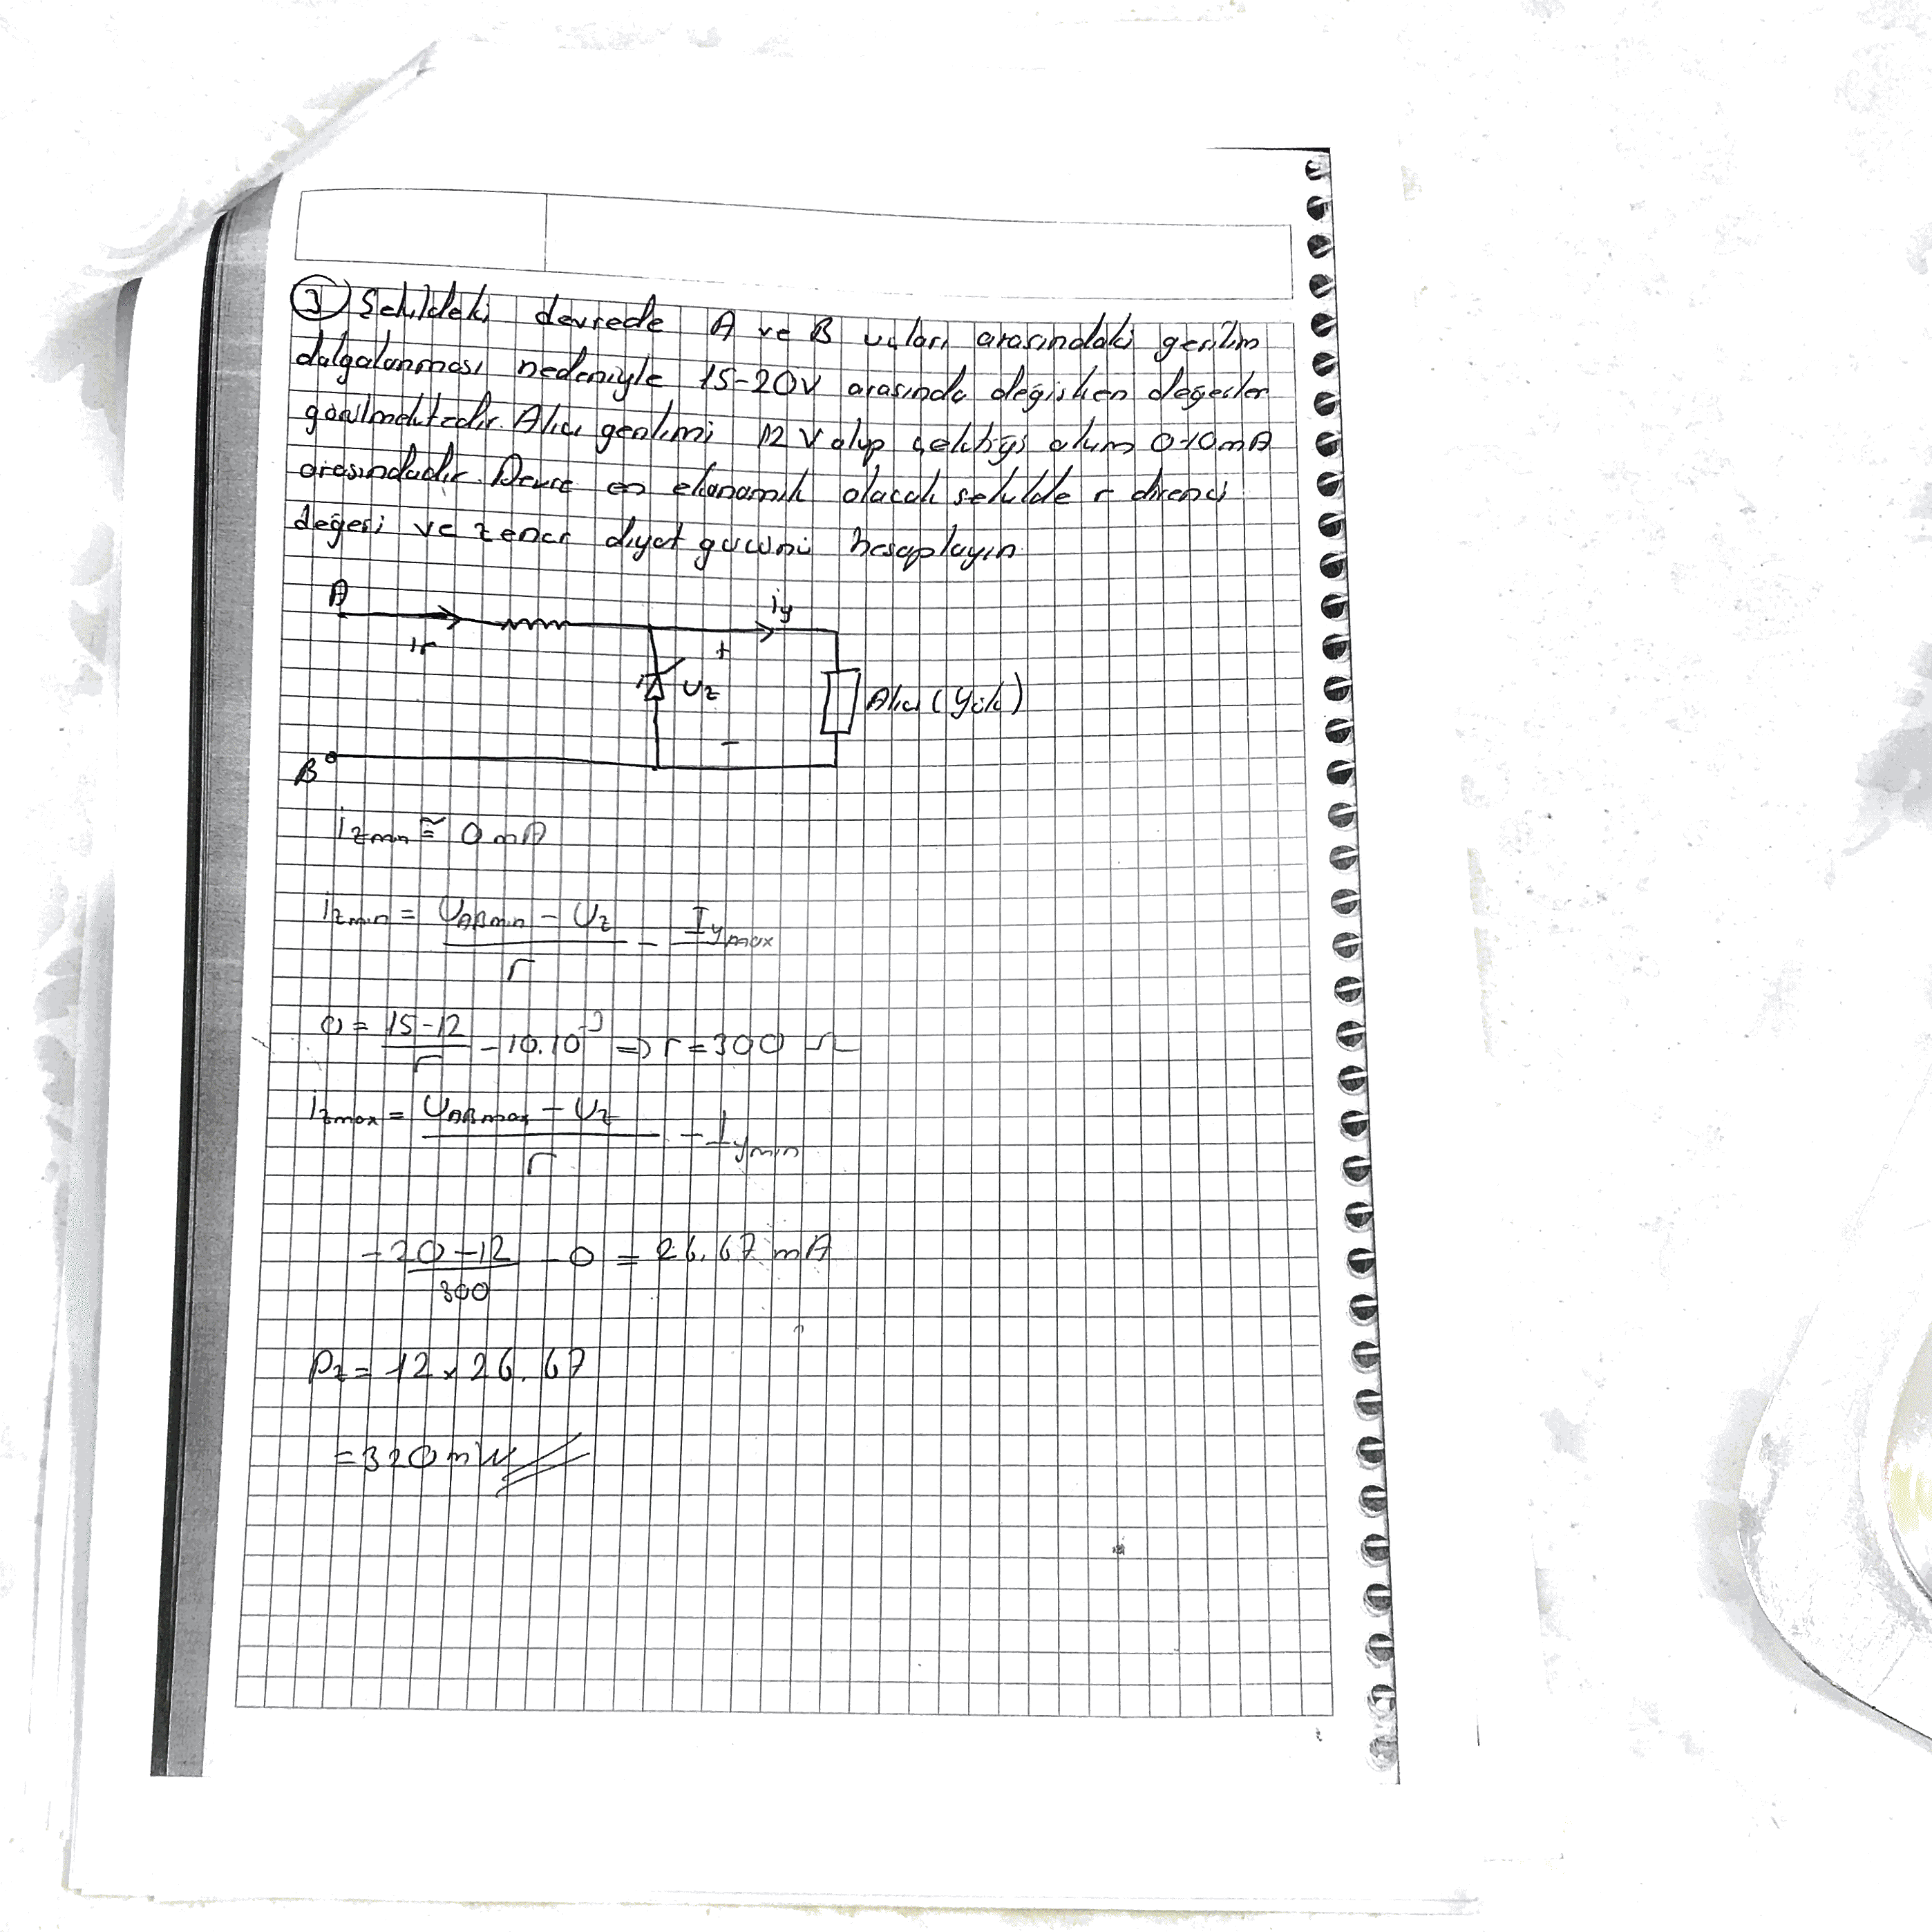 ③ Şekildeki devrede A ve B uçları arasındaki gerilim
dalgalanması nedeniyle 15-20V arasında değişken değerler
görülmektedir. Alıcı gerilimi 12 V olup çektiği akım 0-10mA
arasındadır. Devre en ekonomik olacak şekilde r direnci
değeri ve zener diyot gücünü hesaplayın.
A
ir
iy
+
Uz
Alıcı (Yük)
-
B
izmin ≅ 0 mA
izmin = (UABmin - Uz) / r - Iymax
0 = (15-12) / r - 10.10⁻³ => r = 300 Ω
izmax = (UABmax - Uz) / r - Iymin
= (20-12) / 300 - 0 = 26.67 mA
Pz = 12 x 26.67
= 320 mW